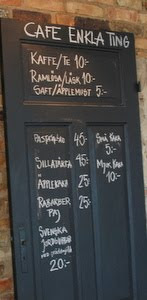 CAFE ENKLA TING
KAFFE/TE 10:-
RAMLÖSA/LÄSK 10:-
SAFT/ÄPPLEMUST 5:-
45:-
SILLATÅRTA 45:-
ÄPPLEKAKA 25:-
RABARBER 25:-
PAJ
SVENSKA
JORDGUBBAR
20:-
SMÅ KAKA
5:-
MJUK KAKA
10:-